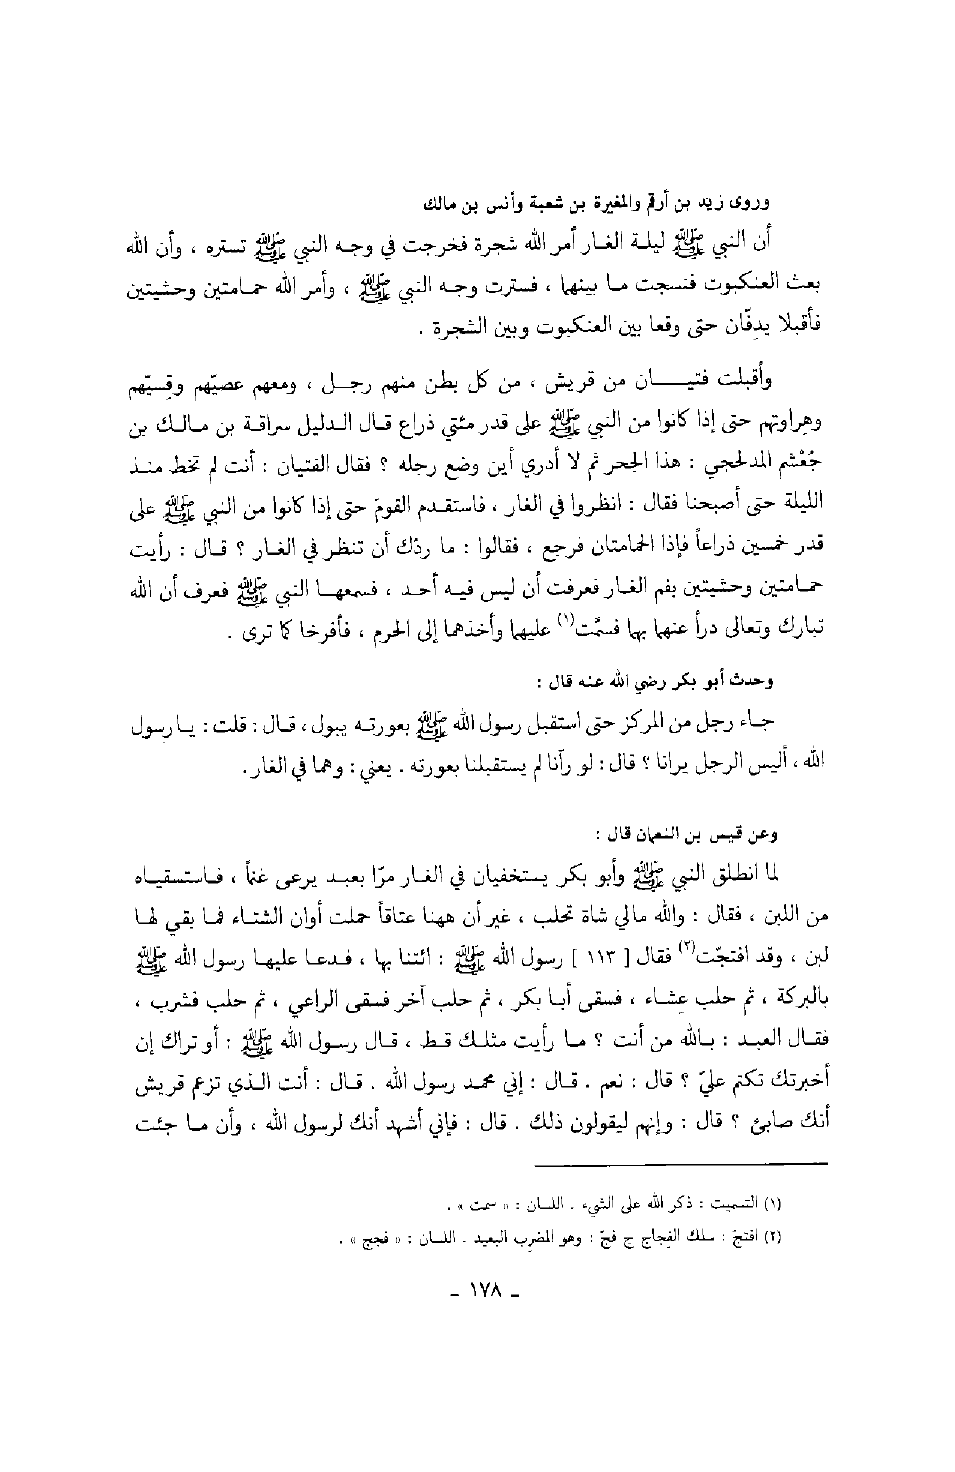 وروى زيد بن أرقم والمغيرة بن شعبة وأنس بن مالك
أن النبي ﷺ ليلة الغار أمر الله شجرة فخرجت في وجه النبي ﷺ تستره ، وأن الله
بعث العنكبوت فنسجت ما بينها ، فسترت وجه النبي ﷺ ، وأمر الله حمامتين وحشيتين
فأقبلا يدفّان حتى وقعا بين العنكبوت وبين الشجرة .
وأقبلت فتيان من قريش ، من كل بطن منهم رجل ، ومعهم عصيّهم وقِسيّهم
وهِراوتهم حتى إذا كانوا من النبي ﷺ على قدر مئتي ذراع قال الدليل سراقة بن مالك بن
جُعْشم المدلجي : هذا الجحر ثم لا أدري أين وضع رجله ؟ فقال الفتيان : أنت لم تخط منذ
الليلة حتى أصبحنا فقال : انظروا في الغار ، فاستقدم القوم حتى إذا كانوا من النبي ﷺ على
قدر خمسين ذراعاً فإذا الحمامتان فرجع ، فقالوا : ما ردّك أن تنظر في الغار ؟ قال : رأيت
حمامتين وحشيتين بفم الغار فعرفت أن ليس فيه أحد ، فسمعها النبي ﷺ فعرف أن الله
تبارك وتعالى درأ عنهما بها فسمَّت(١) عليها وأخذهما إلى الحرم ، فأفرخا كما ترى .
وحدث أبو بكر رضي الله عنه قال :
جاء رجل من المركز حتى استقبل رسول الله ﷺ بعورته يبول ، قال : قلت : يا رسول
الله ، أليس الرجل يرانا ؟ قال : لو رآنا لم يستقبلنا بعورته . يعني : وهما في الغار .
وعن قيس بن النعمان قال :
لما انطلق النبي ﷺ وأبو بكر يستخفيان في الغار مرّا بعبد يرعى غنماً ، فاستسقياه
من اللبن ، فقال : والله مالي شاة تحلب ، غير أن ههنا عناقاً حملت أوان الشتاء فما بقي لها
لبن ، وقد افتجّت(٢) فقال [ ١١٣ ] رسول الله ﷺ : ائتنا بها ، فدعا عليها رسول الله ﷺ
بالبركة ، ثم حلب عِشاء ، فسقى أبا بكر ، ثم حلب آخر فسقى الراعي ، ثم حلب فشرب ،
فقال العبد : بالله من أنت ؟ ما رأيت مثلك قط ، قال رسول الله ﷺ : أو تراك إن
أخبرتك تكتم عليّ ؟ قال : نعم . قال : إني محمد رسول الله . قال : أنت الذي تزعم قريش
أنك صابئ ؟ قال : وإنهم ليقولون ذلك . قال : فإني أشهد أنك لرسول الله ، وأن ما جئت
(١) التسميت : ذكر الله على الشيء . اللسان : « سمت » .
(٢) افتج : سلك الفِجاج ج فجّ : وهو المضرب البعيد . اللسان : « فجج » .
ـ ١٧٨ ـ